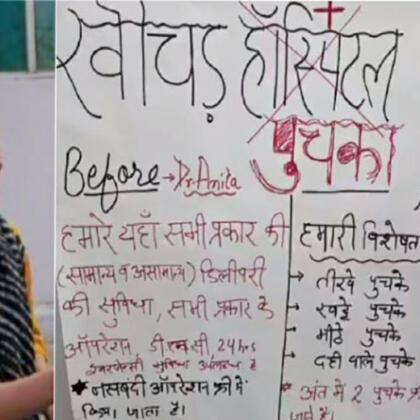 खीचड़ हॉस्पिटल
पुचका
Before → Dr. Anita
हमारे यहाँ सभी प्रकार की
(सामान्य व असामान्य) डिलीवरी
की सुविधा, सभी प्रकार के
ऑपरेशन डी एन सी 24 hrs
सुविधा उपलब्ध है
नसबंदी ऑपरेशन फ्री में
किया जाता है।
हमारी विशेषत
→ तीखे पुचके
→ खट्टे पुचके
→ मीठे पुचके
→ दही वाले पुचके
* अंत में 2 पुचके
जाते है।